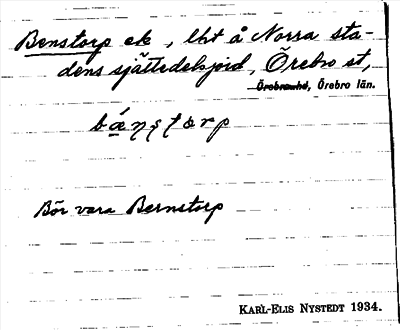 Benstorp ek, lht å Norra sta-
dens sjättedelsjord, Örebro st,
Örebro län.
Bör vara Bernstorp
KARL-ELIS NYSTEDT 1934.